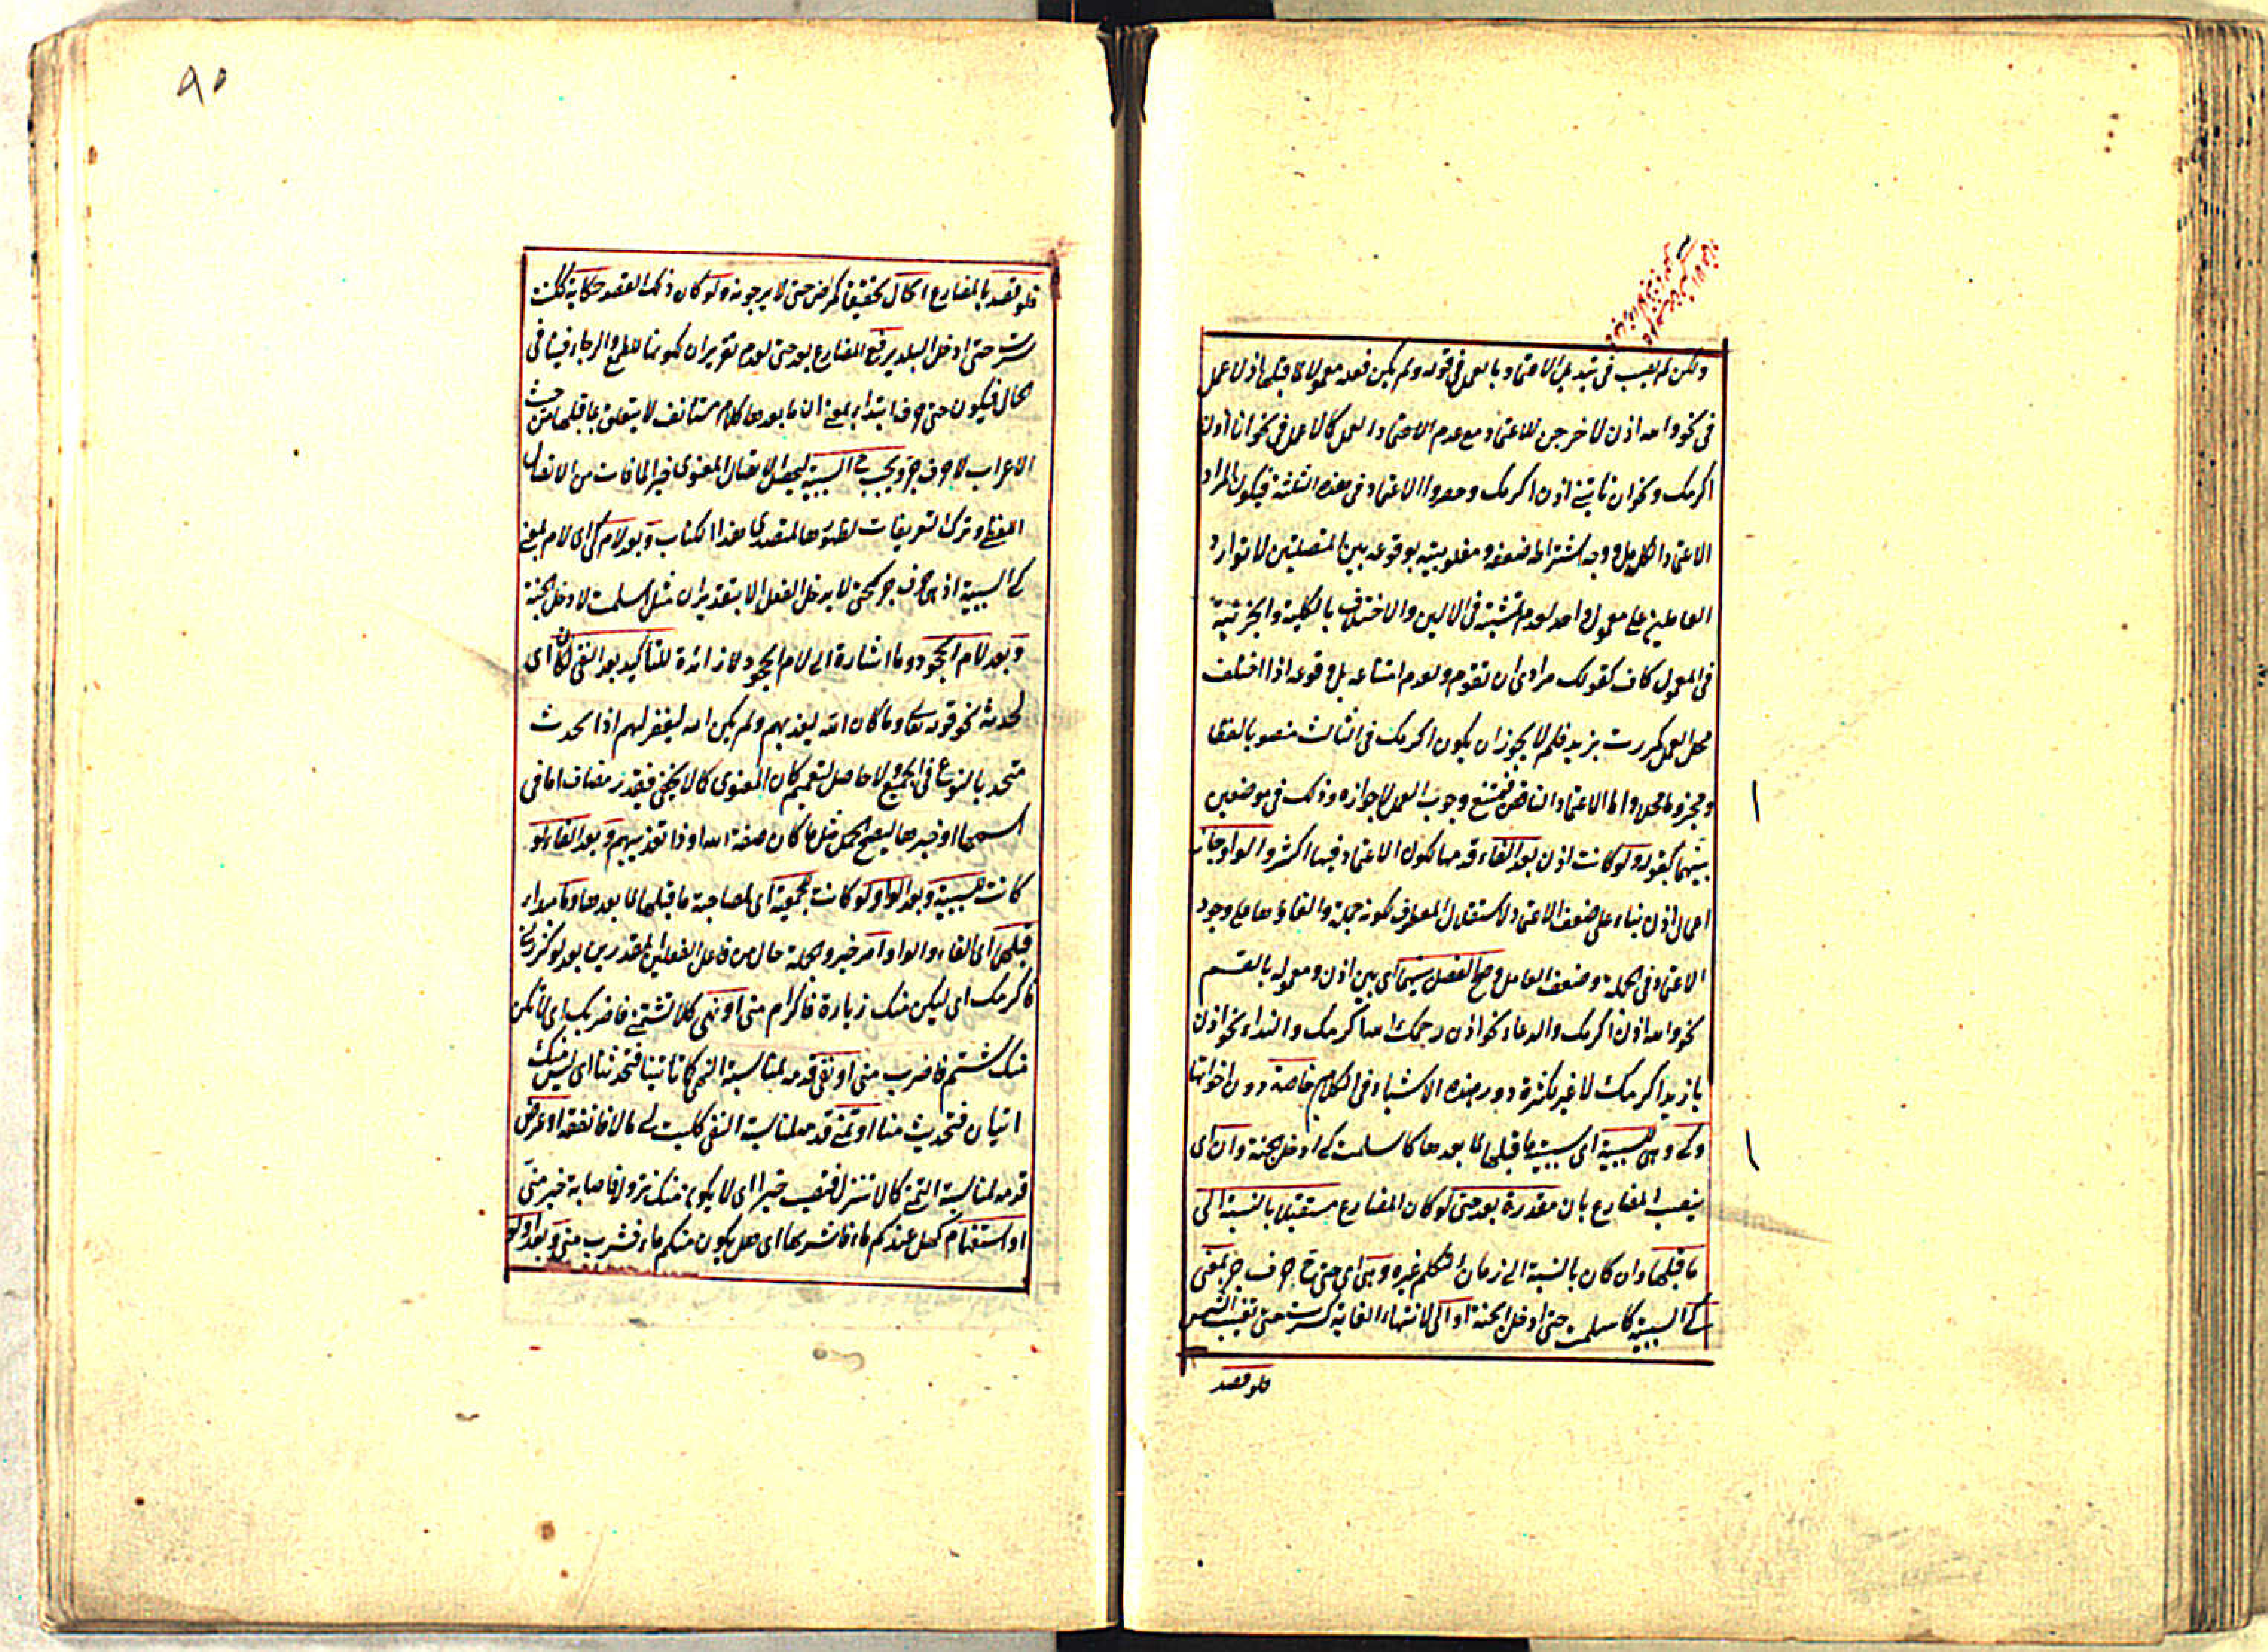 ولكن لم يصب فى تبديل الاعتماد بالعمل فى قوله ولم يكن فعله معمولا لما قبلها اذ لا عمل
فى نحو والله اذن لاخرجن للاعتماد مع عدم الاعتماد العمل كالاعمل فى نحو انا اذن
اكرمك ونحو ان تاتينى اذن اكرمك وحصروا الاعتماد فى هذه الثلثة فيكون المراد
الاعتماد الكامل ووجه اشتراط ضعفه ومغلوبيته بوقوعه بين المتصلين لا توارد
العاملين على معمول واحد لعدم تمشيته فى الاولين والاختلاف بالكلية والجزئية
فى المعمول كاف كقولك مرادى ان تقوم ولعدم امتناعه بل وقوعه اذا اختلف
محل العمل كمررت بزيد فلم لا يجوز ان يكون اكرمك فى الثالث منصوبا لفظا
ومجزوما محلا واما الاعتماد الناقص فيمتنع وجوب العمل لا جوازه وذلك فى موضعين
بينهما بقوله ولو كانت اذن بعد الفاء قدمها لكون الاعتماد فيها اكثر والواو جاز
اعمال اذن بناء على ضعف الاعتماد لاستقلال المعطوف لكونه جملة والغاؤها مع وجود
الاعتماد فى الجملة وضعف العامل وصح الفصل بينهما اى بين اذن ومعموله بالقسم
نحو والله اذن اكرمك والدعاء نحو اذن رحمك الله اكرمك والنداء نحو اذن
يا زيد اكرمك لا غير لكثرة دور هذه الاشياء فى الكلام خاصة دون اخواتها
وكى وهى للسببية اى سببية ما قبلها لما بعدها كاسلمت كى ادخل الجنة وان اى
ينصب المضارع بان مقدرة بعد حتى لو كان المضارع مستقبلا بالنسبة الى
ما قبلها وان كان بالنسبة الى زمان التكلم غيره وهى اى حتى ح حرف جر بمعنى
كى السببية كاسلمت حتى ادخل الجنة او الى لانتهاء الغاية كسرت حتى تغيب الشمس
فلو قصد
٩٥
فلو قصد بالمضارع الحال تحقيقا كمرض حتى لا يرجونه ولو كان ذلك القصد حكاية ككنت
سرت حتى ادخل البلد يرفع المضارع بعد حتى لعدم تقرير ان لكونها للطمع والرجاء فينافى
الحال فيكون حتى حرف ابتداء بمعنى ان ما بعدها كلام مستأنف لا يتعلق بما قبلها من حيث
الاعراب لا حرف جر ويجب ح السببية ليحصل الاتصال المعنوى جبرا لما فات من الاتصال
اللفظى وترك التعريفات لظهورها لمتصدى هذا الكتاب وبعد لام كى اى لام بمعنى
كى السببية اذ هى حرف جر كحتى لا يدخل الفعل الا بتقدير ان مثل اسلمت لادخل الجنة
وبعد لام الجحود وما اشارة الى لام الجحود لا زائدة للتاكيد بعد النفى لكان اى
لحدث نحو قوله تعالى وما كان الله ليعذبهم ولم يكن الله ليغفر لهم اذ الحدث
متحد بالنوع فى الجميع ولا حاصل لتعميم كان المعنوى كالا يخفى فيقدر مضاف اما فى
اسمها او خبرها ليصح الحمل مثل ما كان صفة الله او ذا تعذيبهم وبعد الفاء لو
كانت للسببية وبعد الواو لو كانت للجمعية اى لمصاحبة ما قبلها لما بعدها وما مبتداء
قبلهما اى الفاء والواو امر خبر والجملة حال من فاعل الفعلين المقدرين بعد لو كزرنى
فاكرمك اى ليكن منك زيارة فاكرام منى او نهى كلا تشتمنى فاضربك اى لا تكن
منك شتم فاضرب منى او نفى قدمه لمناسبة النهى كما تاتينا فتحدثنا اى ليس منك
اتيان فتحديث منا او تمنى قدمه لمناسبة النفى كليت لى مالا فانفقه او عرض
قدمه لمناسبة التمنى كالا تنزل فتصيب خيرا اى لا يكون منك نزول فاصابة خير منى
او استفهام كهل عندكم ماء فاشربها اى هل يكون منكم ماء فشرب منى وبعد او لو